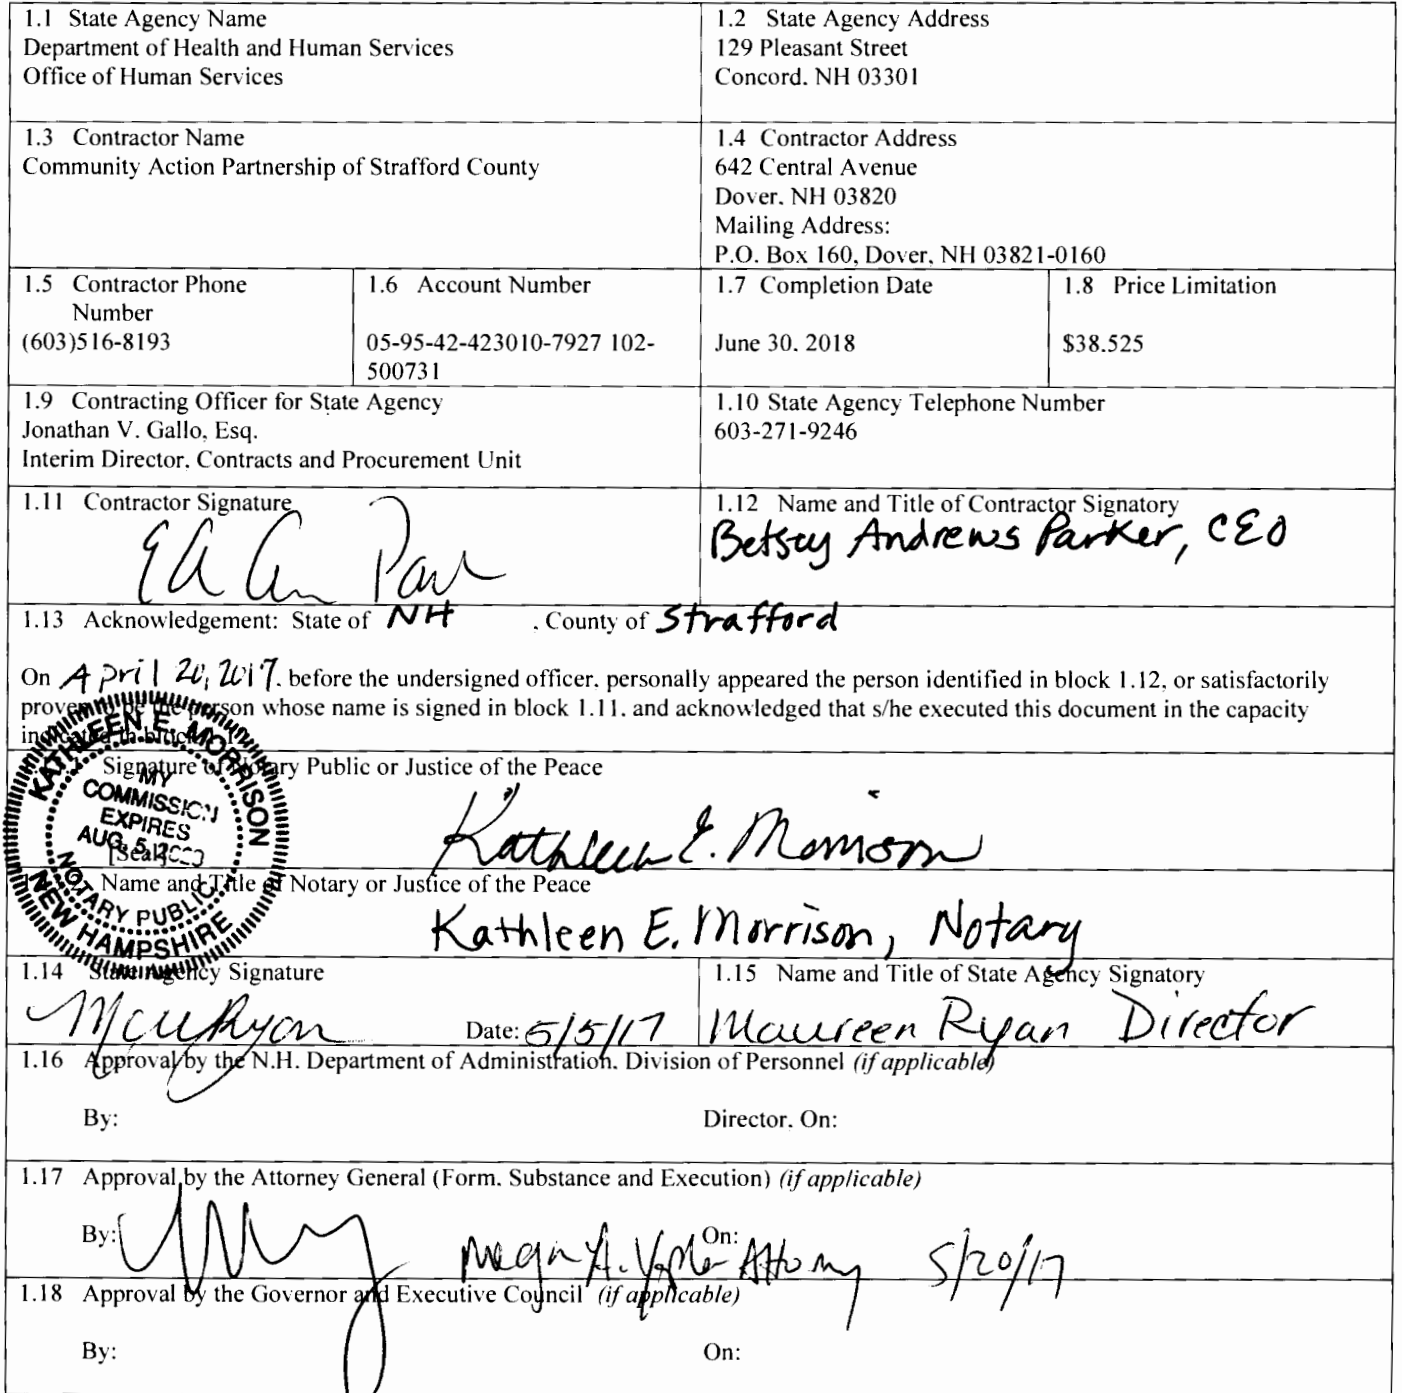 1.1 State Agency Name
Department of Health and Human Services
Office of Human Services
1.2 State Agency Address
129 Pleasant Street
Concord, NH 03301
1.3 Contractor Name
Community Action Partnership of Strafford County
1.4 Contractor Address
642 Central Avenue
Dover, NH 03820
Mailing Address:
P.O. Box 160, Dover, NH 03821-0160
1.5 Contractor Phone
Number
(603)516-8193
1.6 Account Number
05-95-42-423010-7927 102-
500731
1.7 Completion Date
June 30, 2018
1.8 Price Limitation
$38,525
1.9 Contracting Officer for State Agency
Jonathan V. Gallo, Esq.
Interim Director, Contracts and Procurement Unit
1.10 State Agency Telephone Number
603-271-9246
1.11 Contractor Signature
1.12 Name and Title of Contractor Signatory
Betsey Andrews Parker, CEO
1.13 Acknowledgement: State of NH , County of Strafford
On April 20, 2017, before the undersigned officer, personally appeared the person identified in block 1.12, or satisfactorily
proven to be the person whose name is signed in block 1.11, and acknowledged that s/he executed this document in the capacity
indicated in block
Signature of Notary Public or Justice of the Peace
KATHLEEN E. MORRISON
MY
COMMISSION
EXPIRES
AUG. 5, 2020
[Seal]
NOTARY PUBLIC
NEW HAMPSHIRE
Kathleen E. Morrison
Name and Title of Notary or Justice of the Peace
Kathleen E. Morrison, Notary
1.14 State Agency Signature
Date: 5/5/17
1.15 Name and Title of State Agency Signatory
Maureen Ryan Director
1.16 Approval by the N.H. Department of Administration, Division of Personnel (if applicable)
By: Director, On:
1.17 Approval by the Attorney General (Form, Substance and Execution) (if applicable)
By: On:
Megan A. Attorney 5/20/17
1.18 Approval by the Governor and Executive Council (if applicable)
By: On: